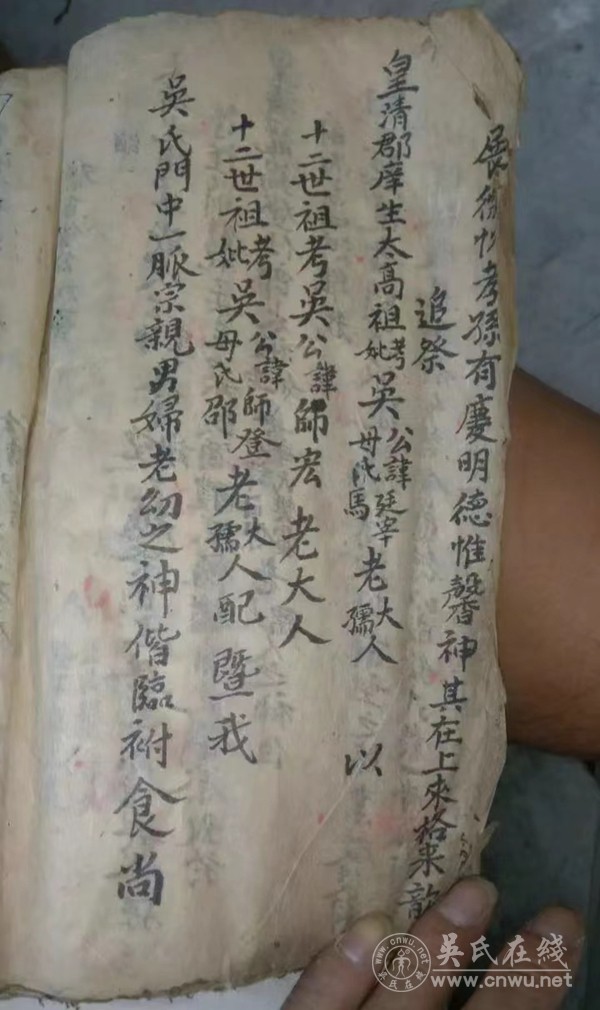 展微忱孝孫有慶明德惟馨神其在上來格來歆
追祭
皇清郡庠生太高祖考妣吳公諱廷宰母氏馬老大孺人 以
十二世祖考吳公諱師宏老大人
十二世祖考妣吳公諱師登母氏邵老大孺人配暨我
吳氏門中一脈宗親男婦老幼之神偕臨祔食尚
吳氏在綫
www.cnwu.net